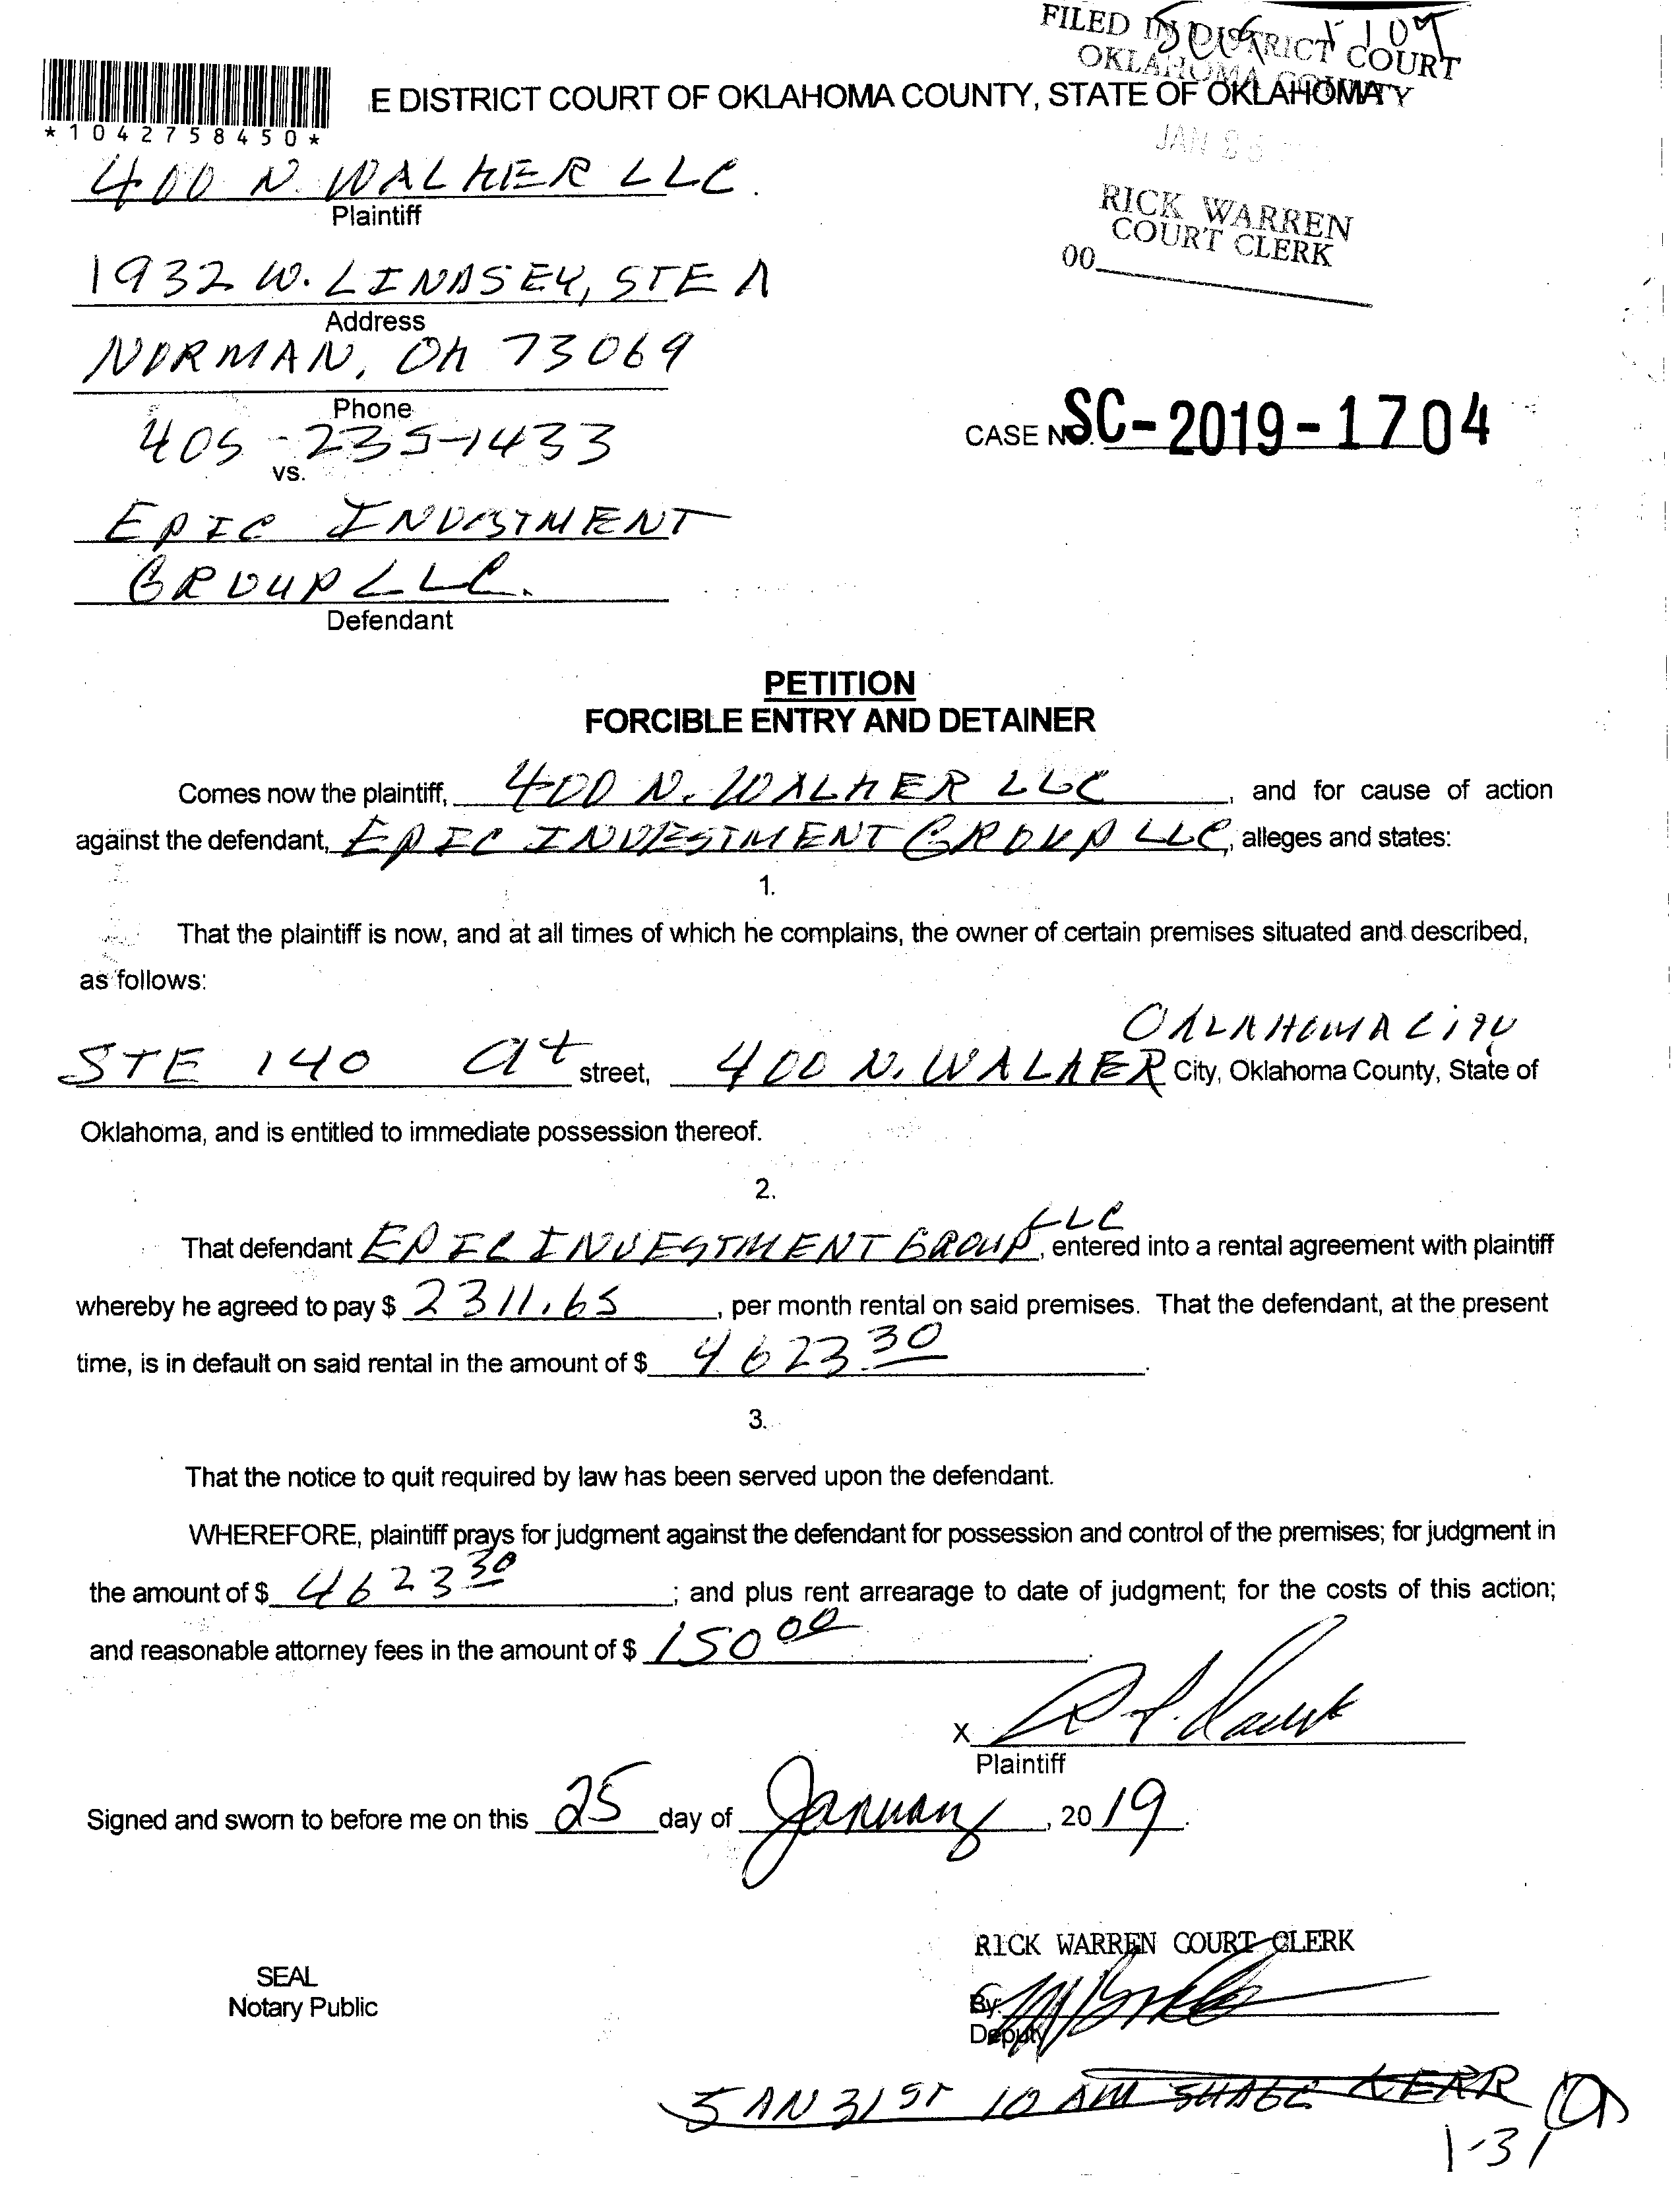 FILED IN DISTRICT COURT
OKLAHOMA COUNTY
E DISTRICT COURT OF OKLAHOMA COUNTY, STATE OF OKLAHOMA
*1042758450*
JAN
400 N. WALKER LLC.
Plaintiff
RICK WARREN
COURT CLERK
00
1932 W. LINDSEY, STE A
Address
NORMAN, OK 73069
Phone
405-235-1433
CASE NO. SC-2019-1704
vs.
EPIC INVESTMENT
GROUP LLC.
Defendant
PETITION
FORCIBLE ENTRY AND DETAINER
Comes now the plaintiff, 400 N. WALKER LLC, and for cause of action
against the defendant, EPIC INVESTMENT GROUP LLC, alleges and states:
1.
That the plaintiff is now, and at all times of which he complains, the owner of certain premises situated and described,
as follows:
OKLAHOMA CITY
STE 140 at street, 400 N. WALKER City, Oklahoma County, State of
Oklahoma, and is entitled to immediate possession thereof.
2.
That defendant EPIC INVESTMENT GROUP LLC, entered into a rental agreement with plaintiff
whereby he agreed to pay $ 2311.65, per month rental on said premises. That the defendant, at the present
time, is in default on said rental in the amount of $ 4623 30.
3.
That the notice to quit required by law has been served upon the defendant.
WHEREFORE, plaintiff prays for judgment against the defendant for possession and control of the premises; for judgment in
the amount of $ 4623 30; and plus rent arrearage to date of judgment; for the costs of this action;
and reasonable attorney fees in the amount of $ 150 00.
X
Plaintiff
Signed and sworn to before me on this 25 day of January, 2019.
RICK WARREN COURT CLERK
SEAL
Notary Public
By:
Deputy
JAN 31ST 10 AM KERR
1-31